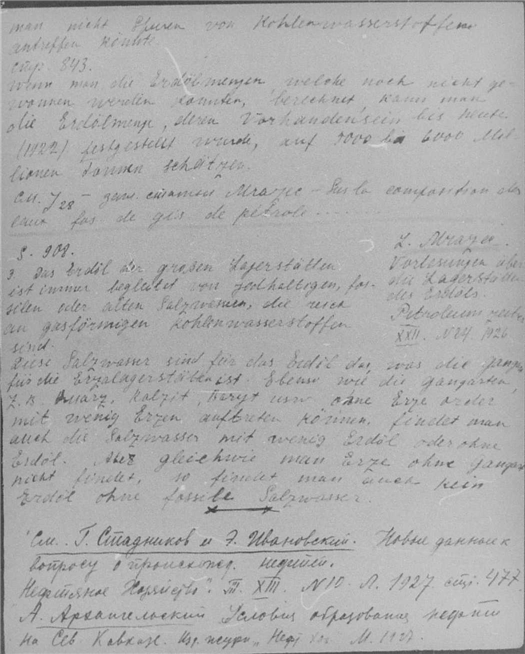 man nicht Spuren von Kohlenwasserstoffen
antreffen könnte
стр. 843.
Wenn man die Erdölmengen, welche noch nicht ge-
wonnen werden konnten, berechnet, kann man
die Erdölmenge, deren Vorhandensein bis heute
(1922) festgestellt wurde, auf 5000 bis 6000 Mil-
lionen Tonnen schätzen.
См. J28 – зам. статьи Mrazec – Sur la composition des
eaux fos. de gis. de pétrole......
S. 908.
L. Mrazec.
Vorlesungen über
die Lagerstätten
des Erdöls.
Petroleum
XXII. N24 1926
3. Das Erdöl der großen Lagerstätten
ist immer begleitet von jodhaltigen, fos-
silen oder alten Salzwassern, die reich
an gasförmigen Kohlenwasserstoffen
sind.
Diese Salzwasser sind für das Erdöl das, was die Gangart
für die Erzlagerstätten ist. Ebenso wie die Gangarten,
z.B. Quarz, Kalzit, Baryt usw. ohne Erze oder
mit wenig Erzen auftreten können, findet man
auch die Salzwasser mit wenig Erdöl oder ohne
Erdöl. Aber gleichwie man Erze ohne Gangart
nicht findet, so findet man auch kein
Erdöl ohne fossile Salzwasser.
См. Г. Стадников и Э. Ивановский. Новые данные к
вопросу о происхожд. нефти.
Нефтяное Хозяйство. Т. XIII. N10. Л. 1927 стр. 477
А. Архангельский Условия образования нефти
на Сев. Кавказе. Изд. Неф. Хоз. М. 1927.